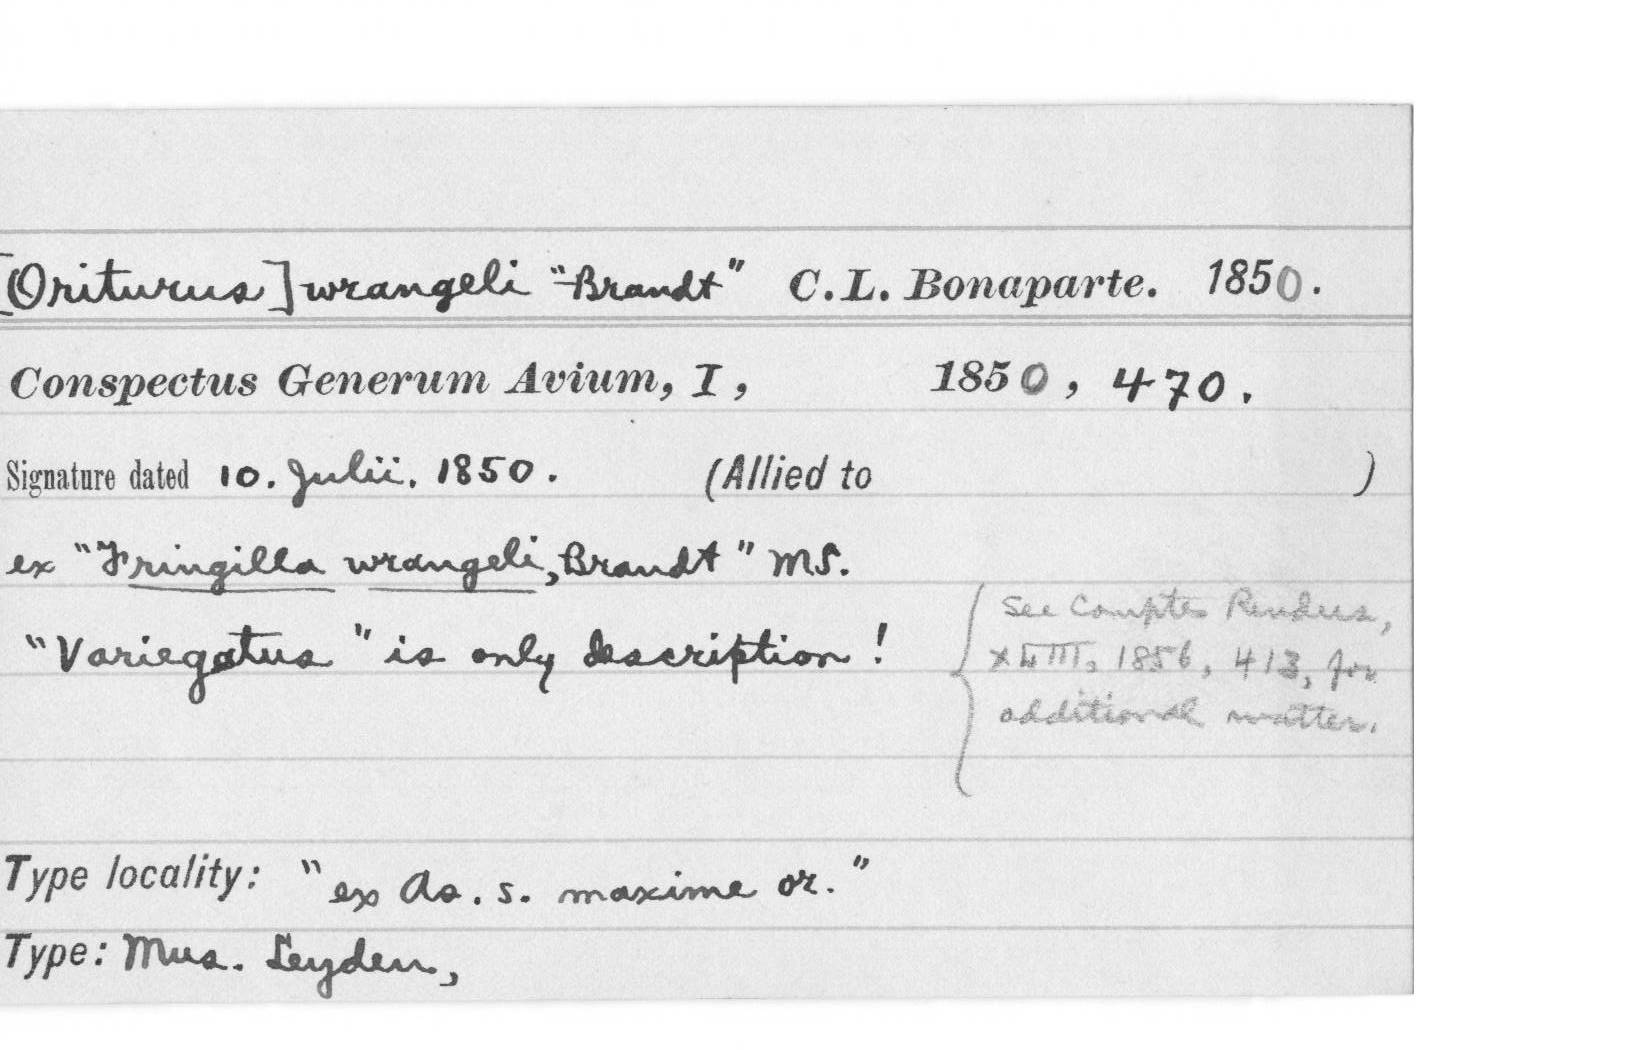 [Oriturus] wrangeli "Brandt" C.L. Bonaparte. 1850.
Conspectus Generum Avium, I, 1850, 470.
Signature dated 10. Julii. 1850. (Allied to )
ex "Fringilla wrangeli, Brandt" MS.
"Variegatus" is only description!
See Comptes Rendus,
XLIII, 1856, 413, for
additional matter.
Type locality: "ex As. s. maxime or."
Type: Mus. Leyden,